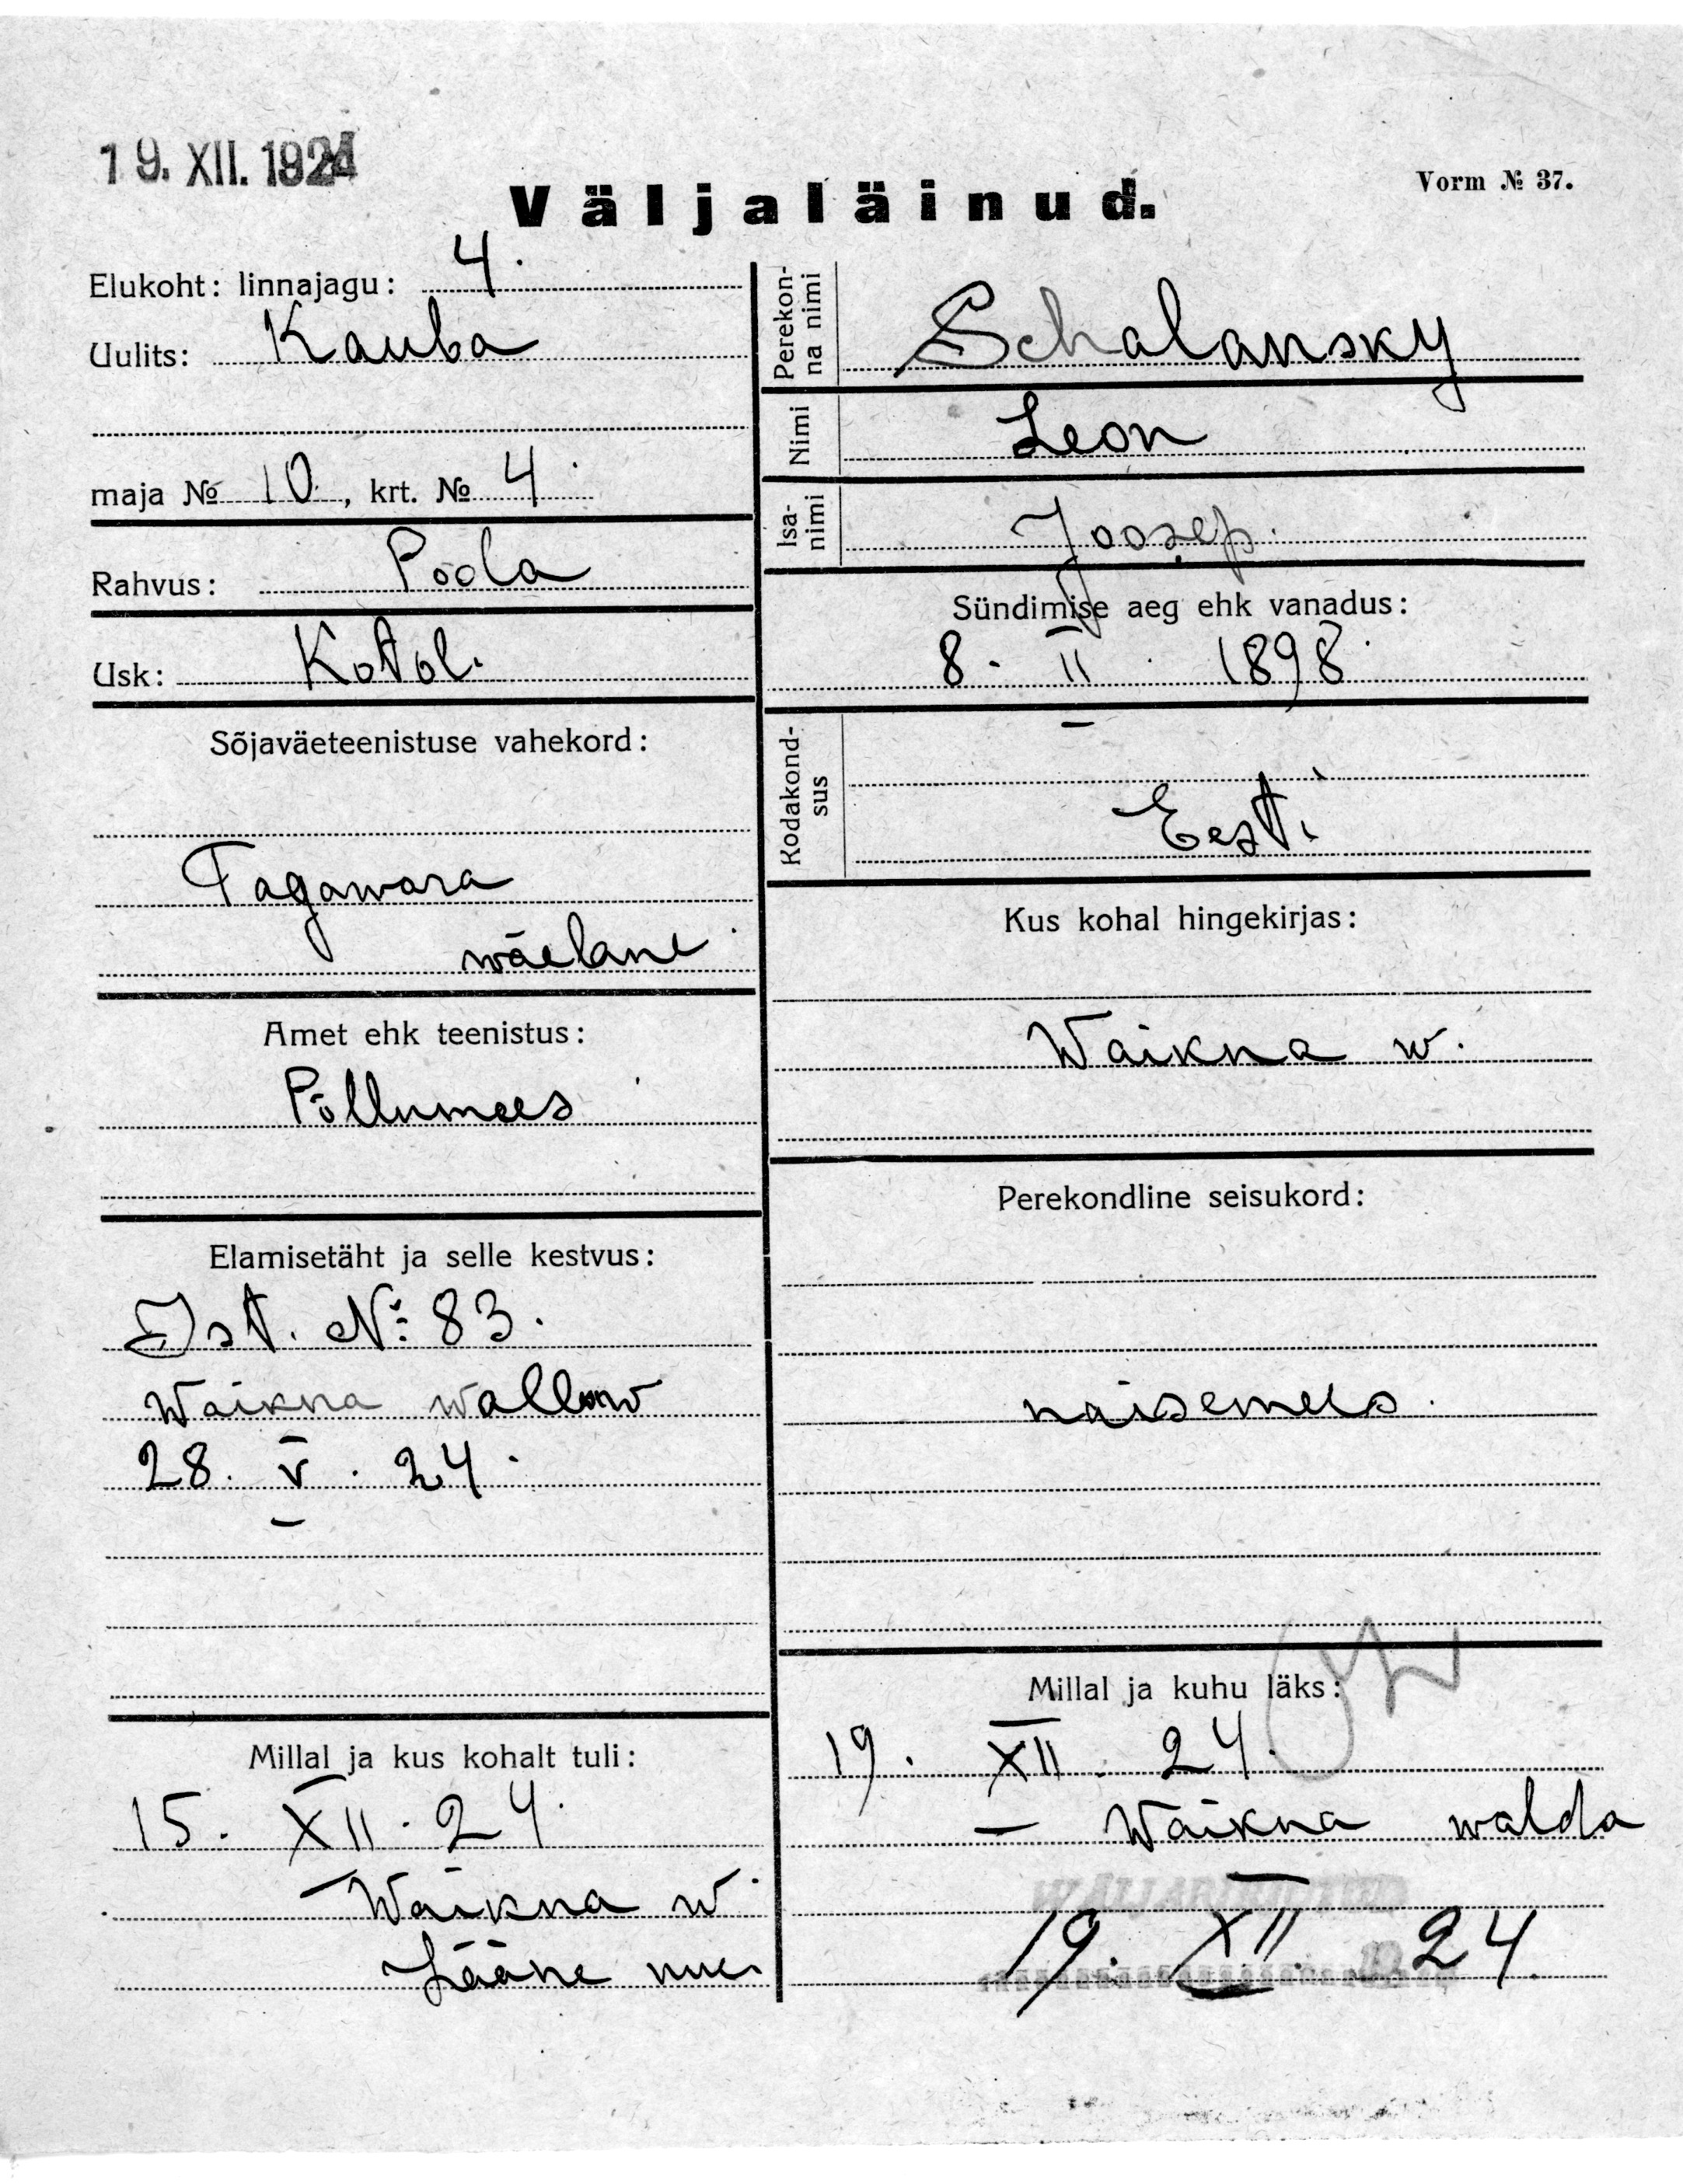 19. XII. 1924
Vorm № 37.
Väljaläinud.
Elukoht: linnajagu: 4.
Uulits: Kauba
maja № 10, krt. № 4.
Rahvus: Poola
Usk: Katol.
Sõjaväeteenistuse vahekord:
Tagawara
wäelane
Amet ehk teenistus:
Põllumees
Elamisetäht ja selle kestvus:
Ist. №: 83.
Waikna wallaw
28. V. 24.
Millal ja kus kohalt tuli:
15. XII. 24.
Waikna w.
Lääne
Perekonna nimi Schalansky
Nimi Leon
Isanimi Joosep.
Sündimise aeg ehk vanadus:
8. II. 1898.
Kodakondsus
Eesti
Kus kohal hingekirjas:
Waikna w.
Perekondline seisukord:
naisemees.
Millal ja kuhu läks:
19. XII. 24.
Waikna walda
19. XII. 24.